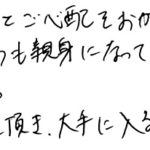 てご心配をおか
つも親身になって
。
頂き、大手に入る